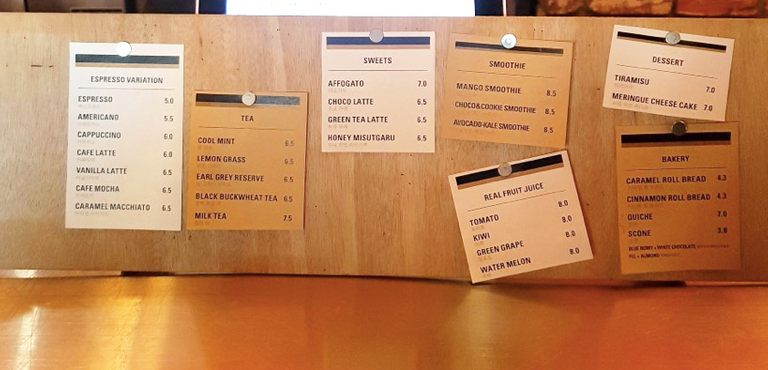 ESPRESSO VARIATION
ESPRESSO 5.0
AMERICANO 5.5
CAPPUCCINO 6.0
CAFE LATTE 6.0
VANILLA LATTE 6.5
CAFE MOCHA 6.5
CARAMEL MACCHIATO 6.5
TEA
COOL MINT 6.5
LEMON GRASS 6.5
EARL GREY RESERVE 6.5
BLACK BUCKWHEAT TEA 6.5
MILK TEA 7.5
SWEETS
AFFOGATO 7.0
CHOCO LATTE 6.5
GREEN TEA LATTE 6.5
HONEY MISUTGARU 6.5
SMOOTHIE
MANGO SMOOTHIE 8.5
CHOCO&COOKIE SMOOTHIE 8.5
AVOCADO·KALE SMOOTHIE 8.5
REAL FRUIT JUICE
TOMATO 8.0
KIWI 8.0
GREEN GRAPE 8.0
WATER MELON 8.0
DESSERT
TIRAMISU 7.0
MERINGUE CHEESE CAKE 7.0
BAKERY
CARAMEL ROLL BREAD 4.3
CINNAMON ROLL BREAD 4.3
QUICHE 7.0
SCONE 3.8
BLUE BERRY + WHITE CHOCOLATE
FIG + ALMOND